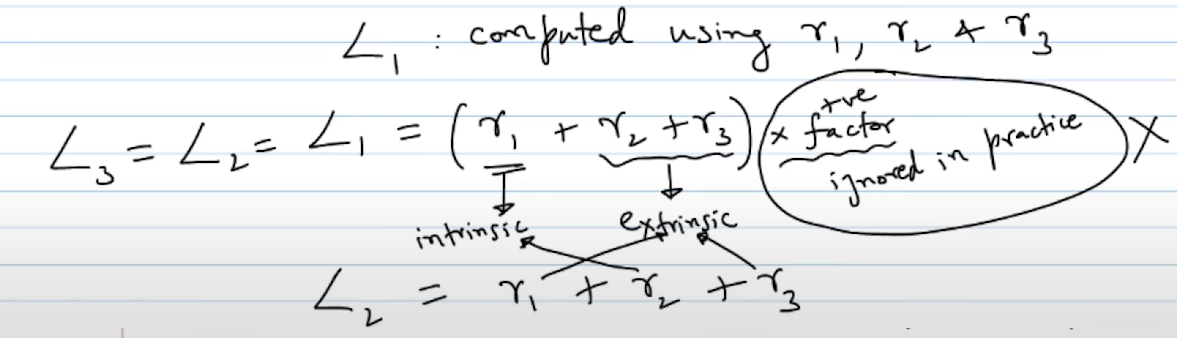 L₁ : computed using r₁, r₂ & r₃
L₃ = L₂ = L₁ = (r₁ + r₂ + r₃) (x +ve factor ignored in practice) X
intrinsic extrinsic
L₂ = r₁ + r₂ + r₃